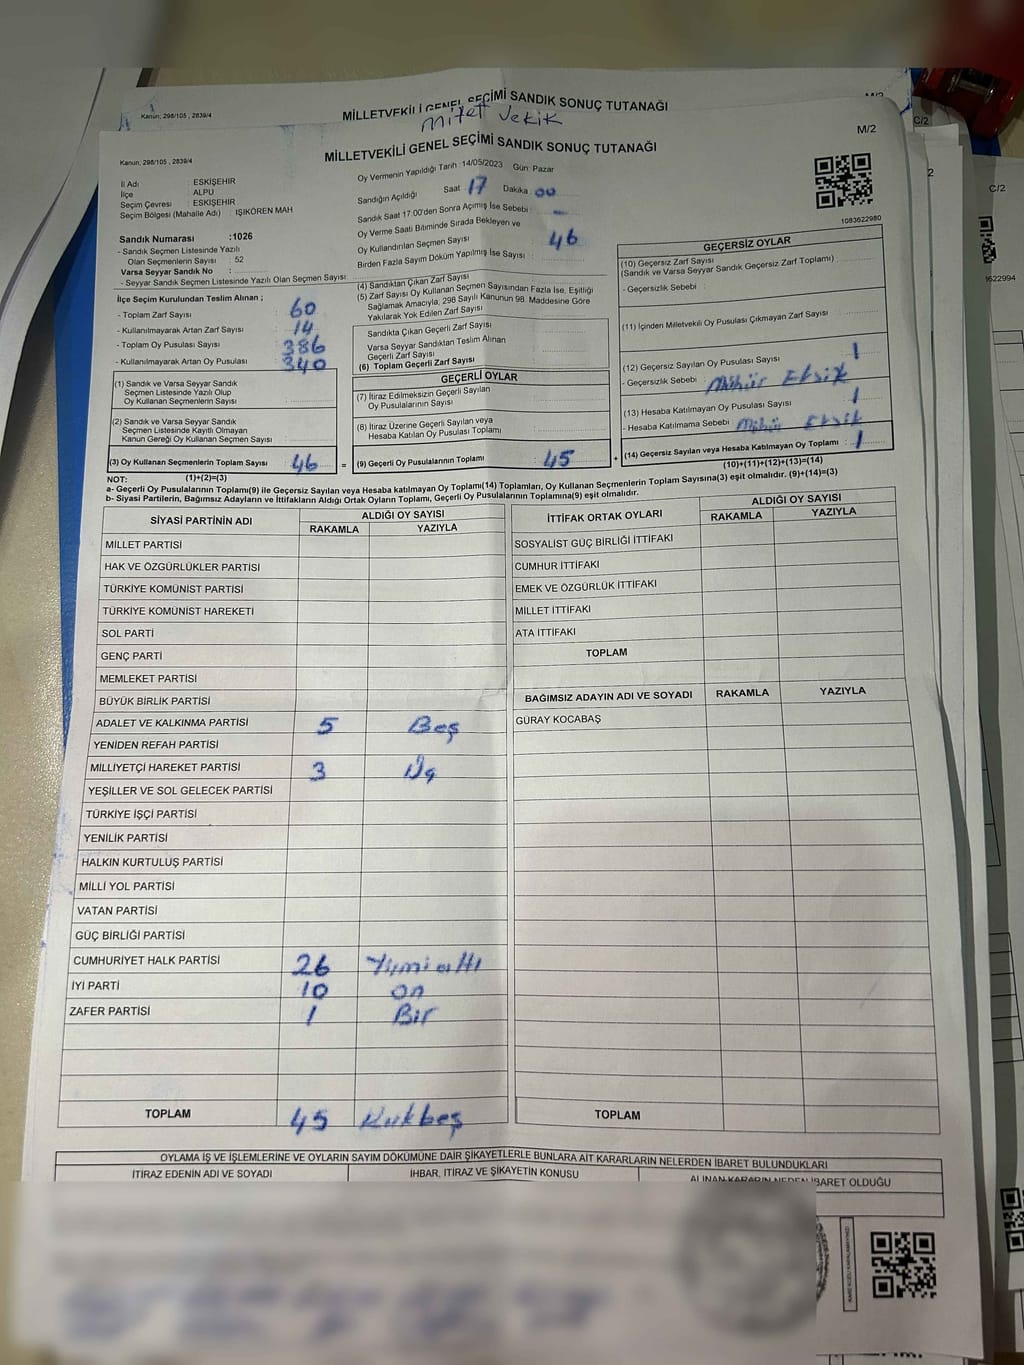 Kanun; 298/105 , 2839/4
MİLLETVEKİLİ GENEL SEÇİMİ SANDIK SONUÇ TUTANAĞI
M/2
Kanun, 298/105 , 2839/4
MİLLETVEKİLİ GENEL SEÇİMİ SANDIK SONUÇ TUTANAĞI
M/2
C/2
C/2
İl Adı : ESKİŞEHİR
İlçe : ALPU
Seçim Çevresi : ESKİŞEHİR
Seçim Bölgesi (Mahalle Adı) : IŞIKÖREN MAH
Sandık Numarası :1026
- Sandık Seçmen Listesinde Yazılı
Olan Seçmenlerin Sayısı : 52
Varsa Seyyar Sandık No :
- Seyyar Sandık Seçmen Listesinde Yazılı Olan Seçmen Sayısı :
Oy Vermenin Yapıldığı Tarih : 14/05/2023 Gün: Pazar
Sandığın Açıldığı Saat 17 Dakika : 00
Sandık Saat 17:00'den Sonra Açılmış İse Sebebi : -
Oy Verme Saati Bitiminde Sırada Bekleyen ve
Oy Kullandırılan Seçmen Sayısı : 46
Birden Fazla Sayım Döküm Yapılmış İse Sayısı :
1083622980
İlçe Seçim Kurulundan Teslim Alınan ;
- Toplam Zarf Sayısı : 60
- Kullanılmayarak Artan Zarf Sayısı : 14
- Toplam Oy Pusulası Sayısı : 386
- Kullanılmayarak Artan Oy Pusulası : 340
(1) Sandık ve Varsa Seyyar Sandık
Seçmen Listesinde Yazılı Olup
Oy Kullanan Seçmenlerin Sayısı :
(2) Sandık ve Varsa Seyyar Sandık
Seçmen Listesinde Kayıtlı Olmayan
Kanun Gereği Oy Kullanan Seçmen Sayısı :
(3) Oy Kullanan Seçmenlerin Toplam Sayısı : 46 =
(4) Sandıktan Çıkan Zarf Sayısı
(5) Zarf Sayısı Oy Kullanan Seçmen Sayısından Fazla İse, Eşitliği
Sağlamak Amacıyla, 298 Sayılı Kanunun 98. Maddesine Göre
Yakılarak Yok Edilen Zarf Sayısı :
Sandıkta Çıkan Geçerli Zarf Sayısı
Varsa Seyyar Sandıktan Teslim Alınan
Geçerli Zarf Sayısı
(6) Toplam Geçerli Zarf Sayısı
GEÇERLİ OYLAR
(7) İtiraz Edilmeksizin Geçerli Sayılan
Oy Pusulalarının Sayısı :
(8) İtiraz Üzerine Geçerli Sayılan veya
Hesaba Katılan Oy Pusulası Toplamı :
(9) Geçerli Oy Pusulalarının Toplamı : 45 +
GEÇERSİZ OYLAR
(10) Geçersiz Zarf Sayısı
(Sandık ve Varsa Seyyar Sandık Geçersiz Zarf Toplamı) :
- Geçersizlik Sebebi :
(11) İçinden Milletvekili Oy Pusulası Çıkmayan Zarf Sayısı :
(12) Geçersiz Sayılan Oy Pusulası Sayısı : 1
- Geçersizlik Sebebi : Mühür Eksik
(13) Hesaba Katılmayan Oy Pusulası Sayısı : 1
- Hesaba Katılmama Sebebi : Mühür Eksik
(14) Geçersiz Sayılan veya Hesaba Katılmayan Oy Toplamı : 1
NOT: (1)+(2)=(3)
(10)+(11)+(12)+(13)=(14)
a- Geçerli Oy Pusulalarının Toplamı(9) ile Geçersiz Sayılan veya Hesaba katılmayan Oy Toplamı(14) Toplamları, Oy Kullanan Seçmenlerin Toplam Sayısına(3) eşit olmalıdır. (9)+(14)=(3)
b- Siyasi Partilerin, Bağımsız Adayların ve İttifakların Aldığı Ortak Oyların Toplamı, Geçerli Oy Pusulalarının Toplamına(9) eşit olmalıdır.
SİYASİ PARTİNİN ADI ALDIĞI OY SAYISI
RAKAMLA YAZIYLA
MİLLET PARTİSİ
HAK VE ÖZGÜRLÜKLER PARTİSİ
TÜRKİYE KOMÜNİST PARTİSİ
TÜRKİYE KOMÜNİST HAREKETİ
SOL PARTİ
GENÇ PARTİ
MEMLEKET PARTİSİ
BÜYÜK BİRLİK PARTİSİ
ADALET VE KALKINMA PARTİSİ 5 Beş
YENİDEN REFAH PARTİSİ
MİLLİYETÇİ HAREKET PARTİSİ 3 Üç
YEŞİLLER VE SOL GELECEK PARTİSİ
TÜRKİYE İŞÇİ PARTİSİ
YENİLİK PARTİSİ
HALKIN KURTULUŞ PARTİSİ
MİLLİ YOL PARTİSİ
VATAN PARTİSİ
GÜÇ BİRLİĞİ PARTİSİ
CUMHURİYET HALK PARTİSİ 26 Yirmi altı
İYİ PARTİ 10 On
ZAFER PARTİSİ 1 Bir
TOPLAM 45 Kırkbeş
İTTİFAK ORTAK OYLARI ALDIĞI OY SAYISI
RAKAMLA YAZIYLA
SOSYALİST GÜÇ BİRLİĞİ İTTİFAKI
CUMHUR İTTİFAKI
EMEK VE ÖZGÜRLÜK İTTİFAKI
MİLLET İTTİFAKI
ATA İTTİFAKI
TOPLAM
BAĞIMSIZ ADAYIN ADI VE SOYADI RAKAMLA YAZIYLA
GÜRAY KOCABAŞ
TOPLAM
OYLAMA İŞ VE İŞLEMLERİNE VE OYLARIN SAYIM DÖKÜMÜNE DAİR ŞİKAYETLERLE BUNLARA AİT KARARLARIN NELERDEN İBARET BULUNDUKLARI
İTİRAZ EDENİN ADI VE SOYADI İHBAR, İTİRAZ VE ŞİKAYETİN KONUSU ALINAN KARARIN NEDEN İBARET OLDUĞU